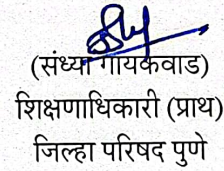 (संध्या गायकवाड)
शिक्षणाधिकारी (प्राथ)
जिल्हा परिषद पुणे